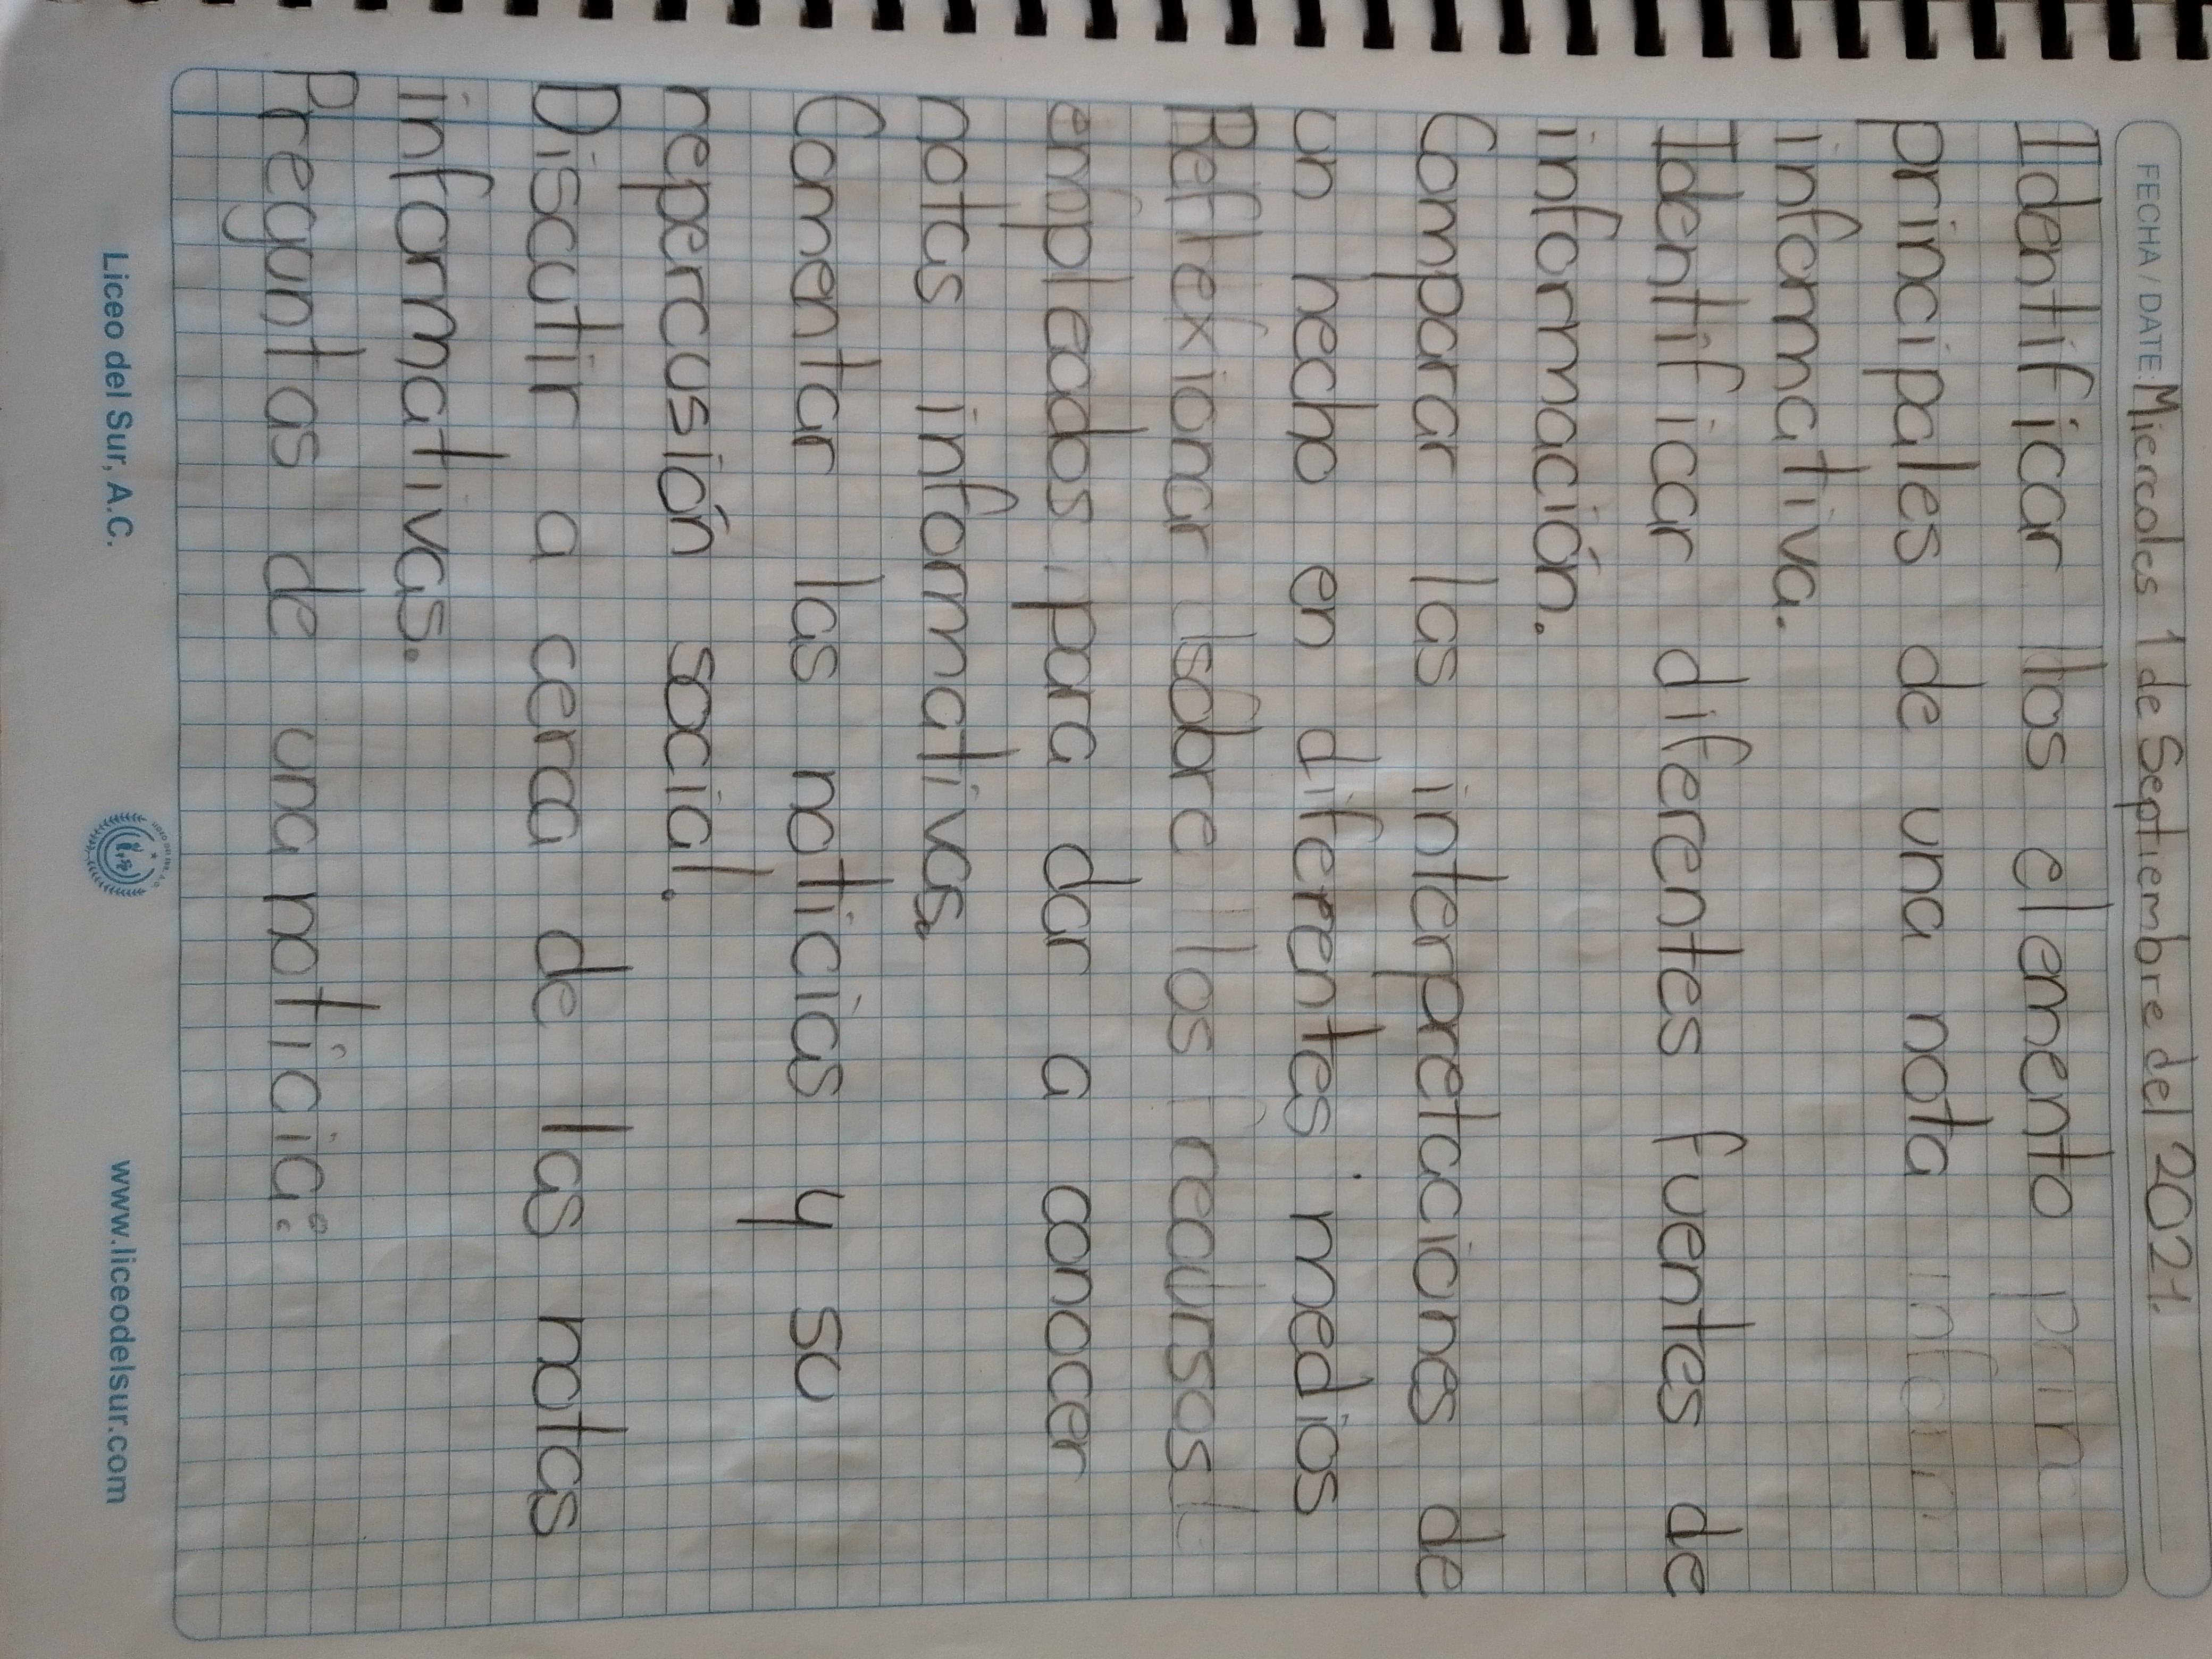 FECHA / DATE: Miercoles 1 de Septiembre del 2021.
Identificar los elemento prin
principales de una nota inform
informativa.
Identificar diferentes fuentes de
información.
Comparar las interpretaciones de
un hecho en diferentes medios
Reflexionar sobre los recursos
empleados para dar a conocer
notas informativas
Comentar las noticias y su
repercusión social.
Discutir a cerca de las notas
informativas.
Preguntas de una noticia:
Liceo del Sur, A.C.
www.liceodelsur.com